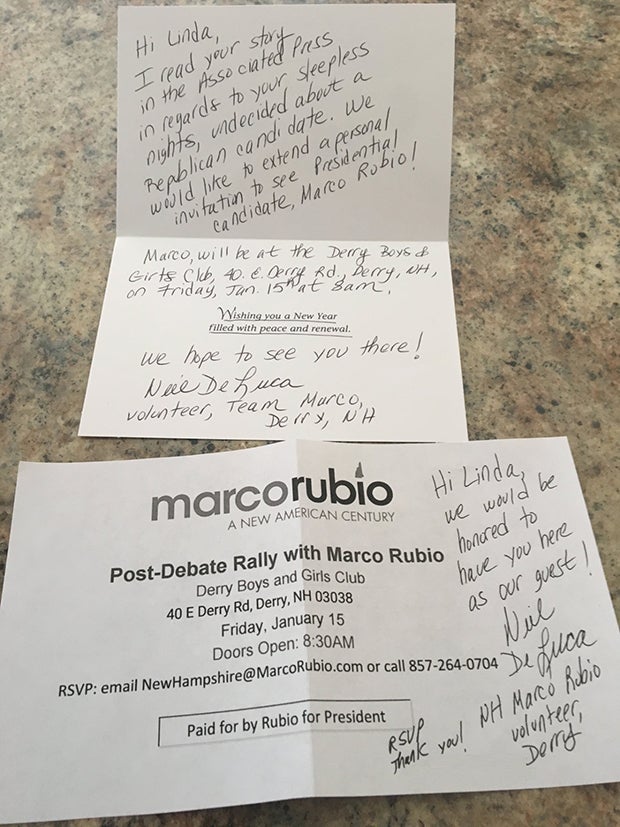 Hi Linda,
I read your story
in the Associated Press
in regards to your sleepless
nights, undecided about a
Republican candidate. We
would like to extend a personal
invitation to see Presidential
candidate, Marco Rubio!
Marco, will be at the Derry Boys &
Girls Club, 40. E. Derry Rd., Derry, NH,
on Friday, Jan. 15th at 8am.
Wishing you a New Year
filled with peace and renewal.
We hope to see you there!
Neil De Luca
volunteer, Team Marco,
Derry, NH
marcorubio
A NEW AMERICAN CENTURY
Post-Debate Rally with Marco Rubio
Derry Boys and Girls Club
40 E Derry Rd, Derry, NH 03038
Friday, January 15
Doors Open: 8:30AM
RSVP: email NewHampshire@MarcoRubio.com or call 857-264-0704
Paid for by Rubio for President
Hi Linda,
we would be
honored to
have you here
as our guest!
Neil
De Luca
NH Marco Rubio
volunteer,
Derry
RSVP
Thank you!